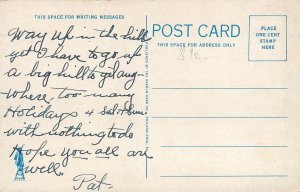 THIS SPACE FOR WRITING MESSAGES
Way up in the hills
yet I have to go up
a big hill to get any-
where too many
Holidays + Sat + Sun
with nothing to do
Hope you all are
well.
Pat.
POST CARD
THIS SPACE FOR ADDRESS ONLY
PLACE
ONE CENT
STAMP
HERE